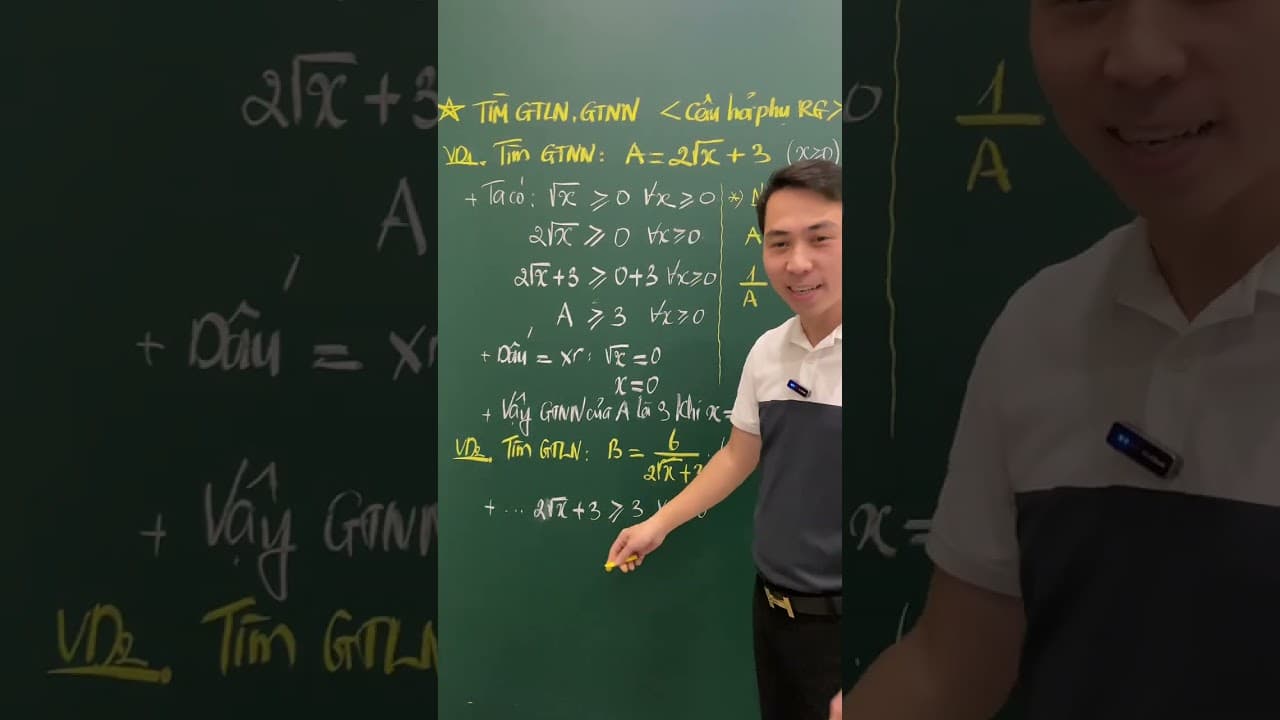 ☆ TÌM GTLN, GTNN <Câu hỏi phụ RG>
VD1. Tìm GTNN: A = 2√x + 3 (x≥0)
+ Ta có: √x ≥ 0 ∀x ≥ 0
2√x ≥ 0 ∀x≥0
2√x+3 ≥ 0+3 ∀x≥0
A ≥ 3 ∀x≥0
+ Dấu = xr: √x = 0
x = 0
+ Vậy GTNN của A là 3 khi x =
VD2. Tìm GTLN: B = 6/(2√x+3
+ ... 2√x + 3 ≥ 3
*)
A
1/A
2√x+3
A
+ Dấu = xr
+ Vậy GTNN
VD2. Tìm GTLN
0
1/A
x=